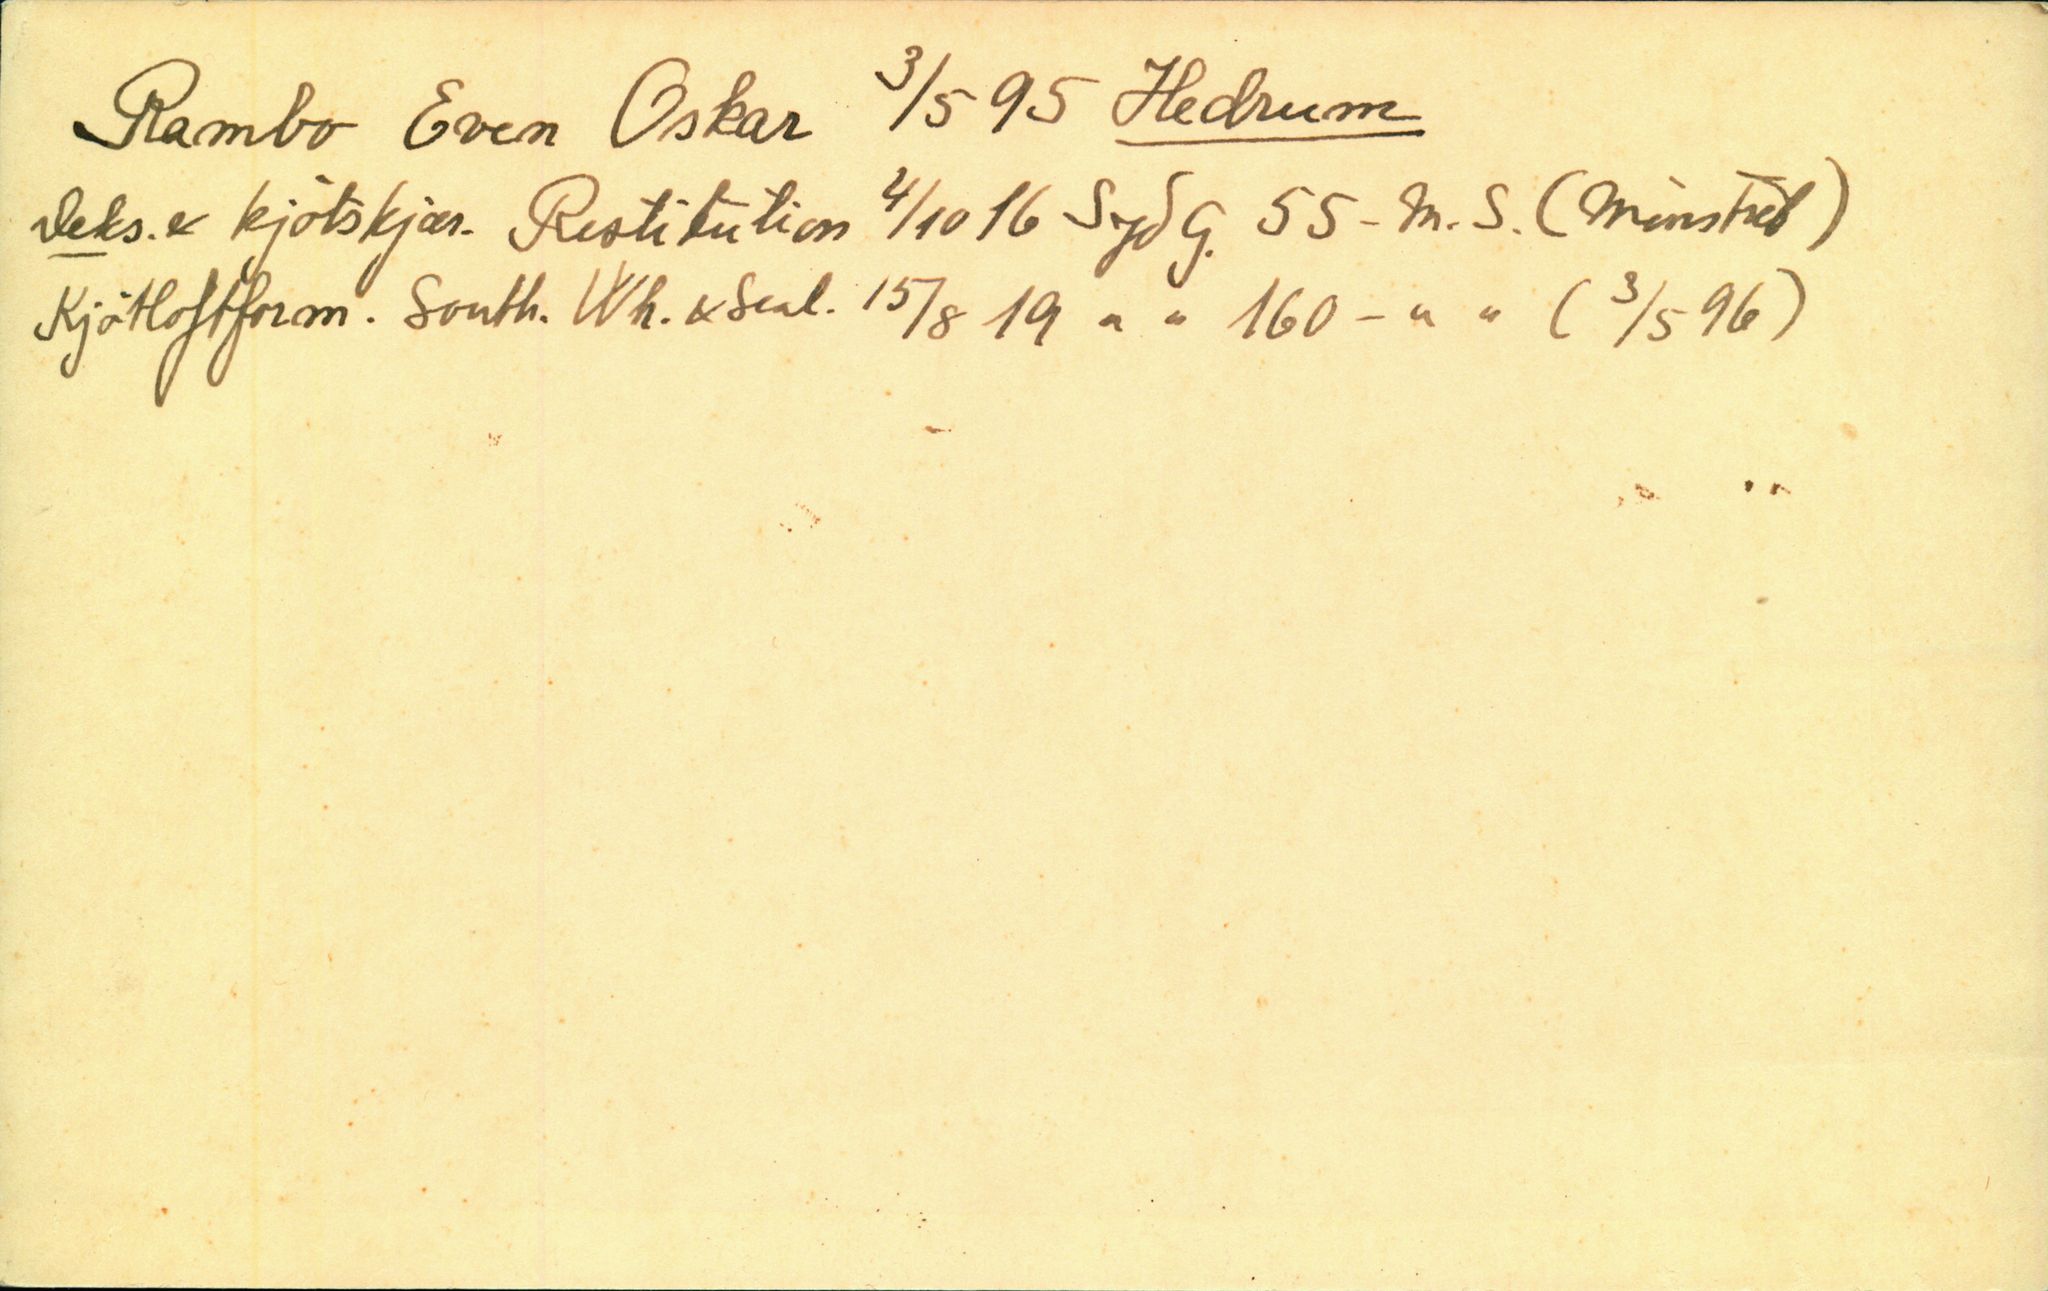 Rambo Even Oskar 3/5 95 Hedrum
Deks. & kjötskjær. Restitution 4/10 16 Syd G. 55 - M. S. (Minstrel)
Kjötloftform. South. Wh. & Seal. 15/8 19 " " 160 - " " (3/5 96)